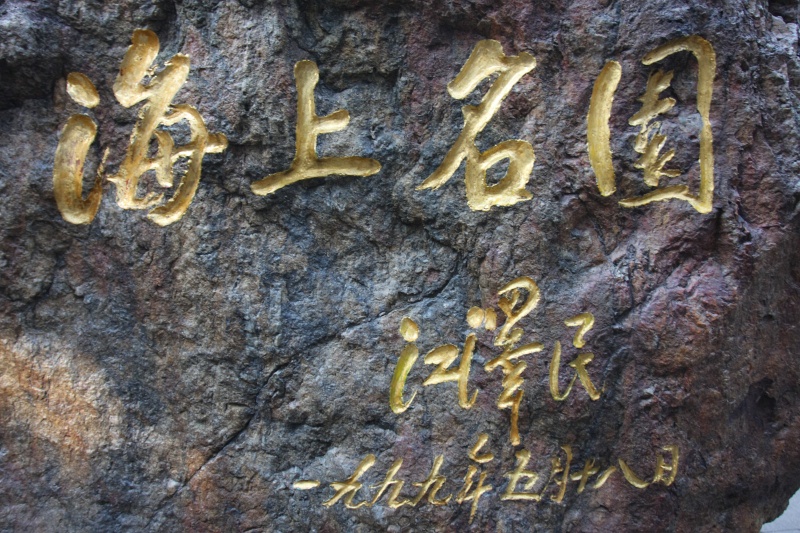 海上名園
江澤民
一九九九年五月十八日